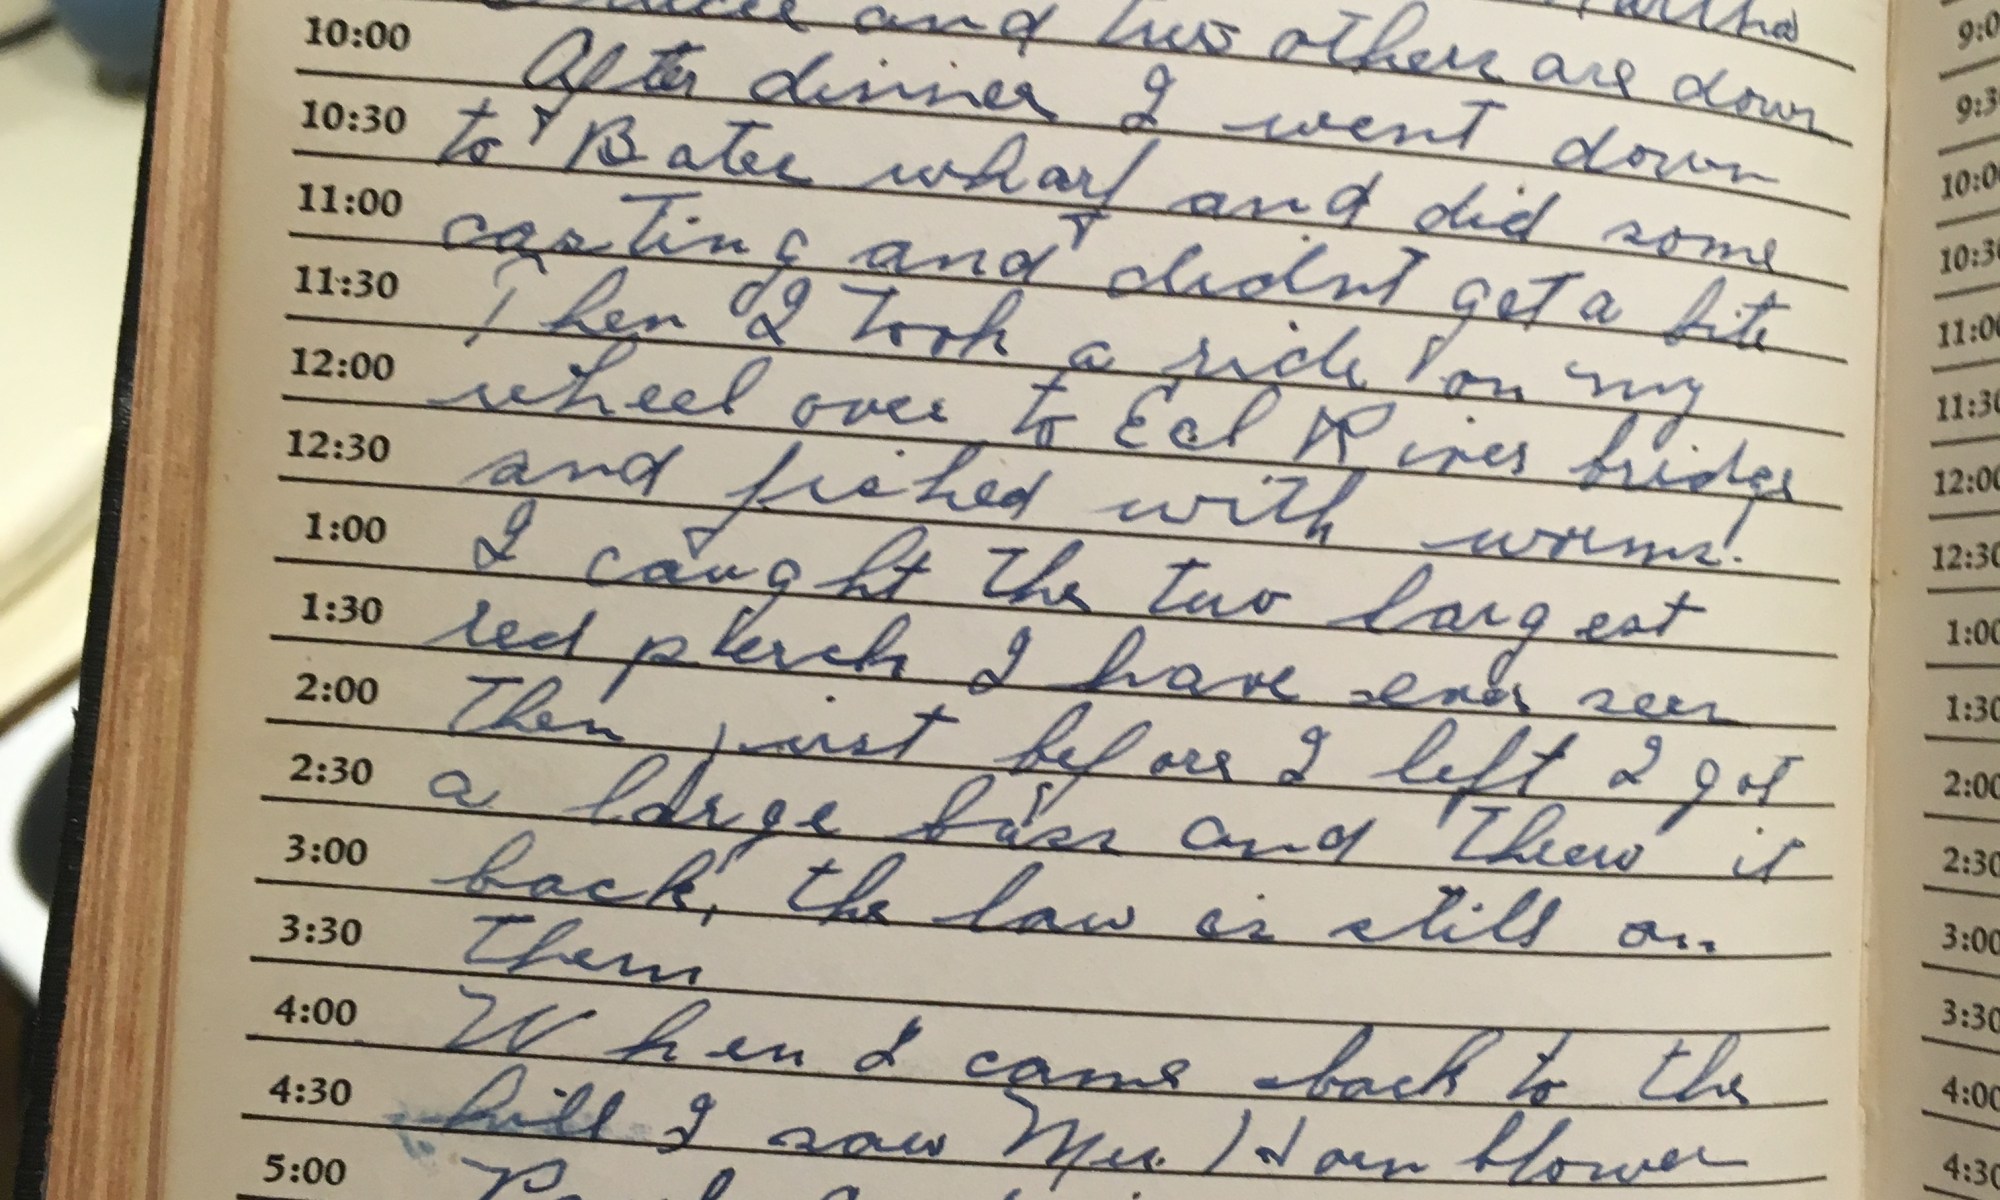 and two others are down
10:00 After dinner I went down
10:30 to Bates wharf and did some
11:00 casting and didnt get a bite
11:30 Then I took a ride on my
12:00 wheel over to Eel River bridge
12:30 and fished with worms.
1:00 I caught the two largest
1:30 red perch I have ever seen
2:00 Then just before I left I got
2:30 a large bass and threw it
3:00 back, the law is still on
3:30 them
4:00 When I came back to the
4:30 hill I saw Mrs. Hornblower
5:00
9:30
10:00
10:30
11:00
11:30
12:00
12:30
1:00
1:30
2:00
2:30
3:00
3:30
4:00
4:30